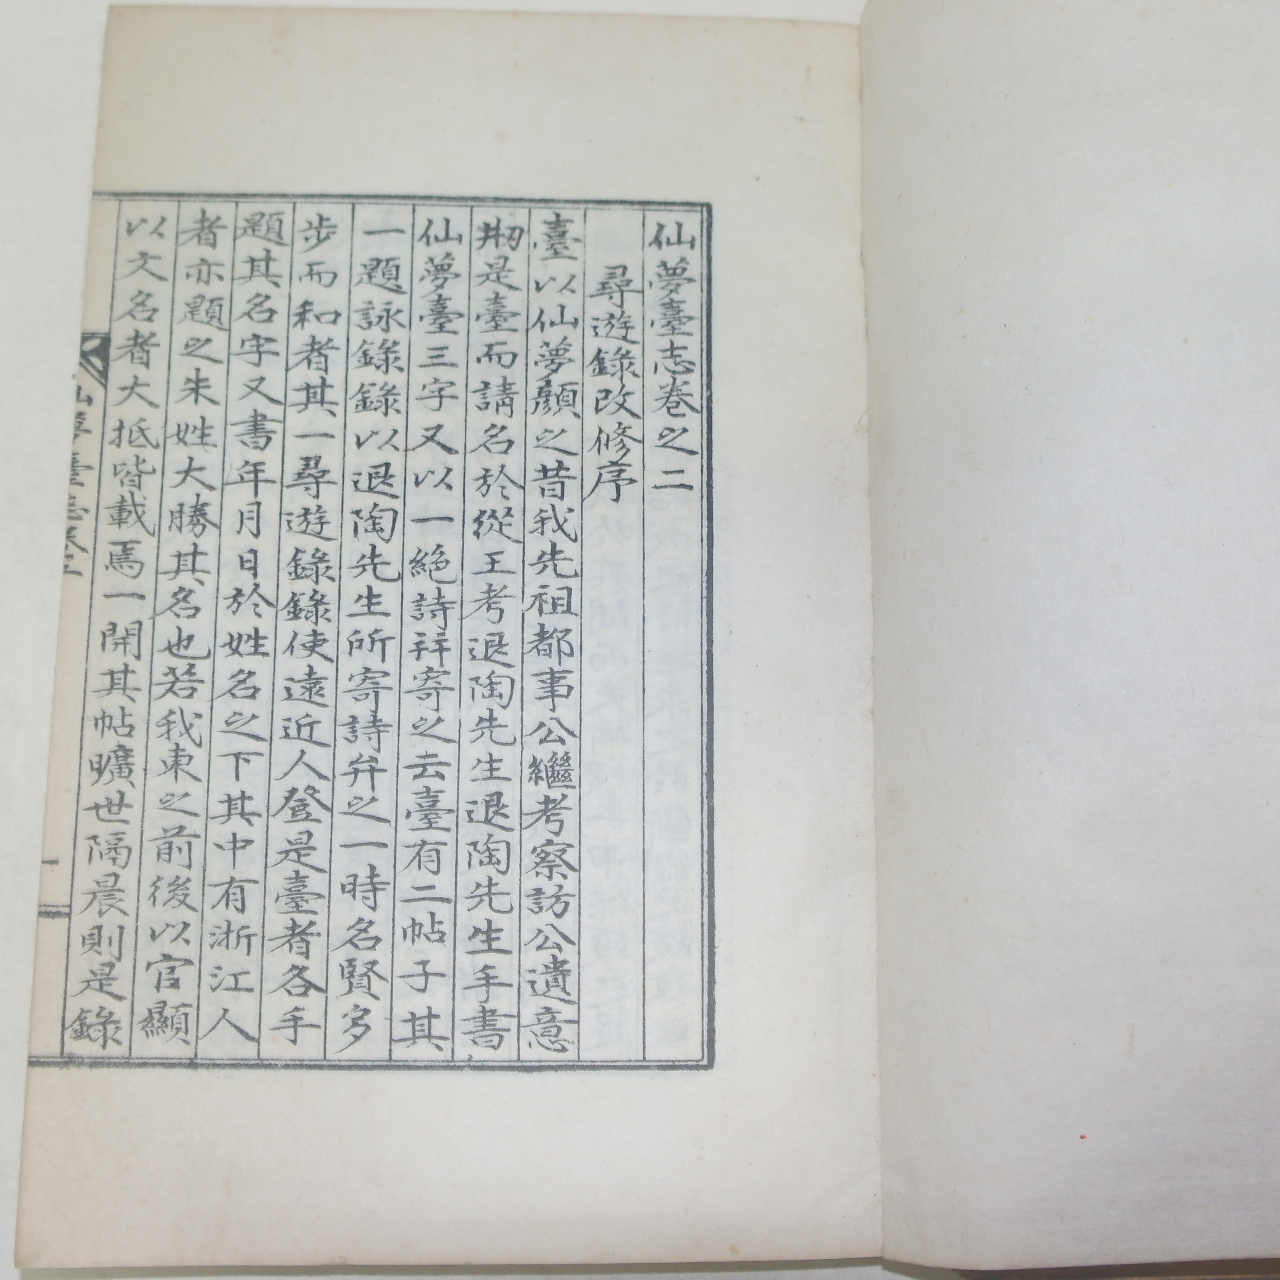 仙夢臺志卷之二
尋遊錄改修序
臺以仙夢顏之昔我先祖都事公繼考察訪公遺意
刱是臺而請名於從王考退陶先生退陶先生手書
仙夢臺三字又以一絶詩幷寄之云臺有二帖子其
一題詠錄錄以退陶先生所寄詩弁之一時名賢多
步而和者其一尋遊錄錄使遠近人登是臺者各手
題其名字又書年月日於姓名之下其中有浙江人
者亦題之朱姓大勝其名也若我東之前後以官顯
以文名者大抵皆載焉一開其帖曠世隔晨則是錄
仙夢臺志卷二
一